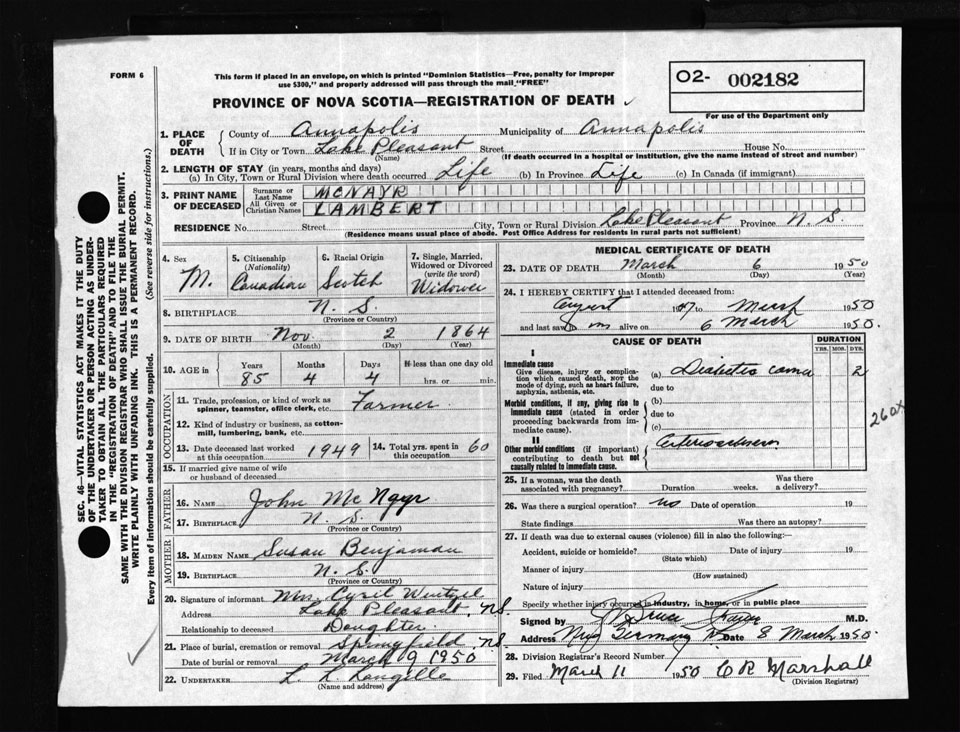 FORM 6
This form if placed in an envelope, on which is printed "Dominion Statistics—Free, penalty for improper
use $300," and properly addressed will pass through the mail "FREE"
O2- 002182
For use of the Department only
PROVINCE OF NOVA SCOTIA—REGISTRATION OF DEATH
SEC. 46—VITAL STATISTICS ACT MAKES IT THE DUTY
OF THE UNDERTAKER OR PERSON ACTING AS UNDER-
TAKER TO OBTAIN ALL THE PARTICULARS REQUIRED
IN THE "REGISTRATION OF DEATH" AND TO FILE THE
SAME WITH THE DIVISION REGISTRAR WHO SHALL ISSUE THE BURIAL PERMIT.
WRITE PLAINLY WITH UNFADING INK. THIS IS A PERMANENT RECORD.
Every item of information should be carefully supplied. (See reverse side for instructions.)
1. PLACE OF DEATH
County of Annapolis Municipality of Annapolis
If in City or Town Lake Pleasant Street House No.
(Name) (If death occurred in a hospital or institution, give the name instead of street and number)
2. LENGTH OF STAY (in years, months and days)
(a) In City, Town or Rural Division where death occurred Life (b) In Province Life (c) In Canada (if immigrant)
3. PRINT NAME OF DECEASED
Surname or Last Name MCNAYR
All Given or Christian Names LAMBERT
RESIDENCE No. Street City, Town or Rural Division Lake Pleasant Province N.S.
(Residence means usual place of abode. Post Office Address for residents in rural parts not sufficient)
4. Sex M.
5. Citizenship (Nationality) Canadian
6. Racial Origin Scotch
7. Single, Married, Widowed or Divorced (write the word) Widower
8. BIRTHPLACE N.S.
(Province or Country)
9. DATE OF BIRTH Nov. 2 1864
(Month) (Day) (Year)
10. AGE in Years 85 Months 4 Days 4 If less than one day old hrs. or min.
OCCUPATION
11. Trade, profession, or kind of work as spinner, teamster, office clerk, etc. Farmer
12. Kind of industry or business, as cotton-mill, lumbering, bank, etc.
13. Date deceased last worked at this occupation 1949
14. Total yrs. spent in this occupation 60
15. If married give name of wife or husband of deceased
FATHER
16. NAME John McNayr
17. BIRTHPLACE N.S.
(Province or Country)
MOTHER
18. MAIDEN NAME Susan Benjaman
19. BIRTHPLACE N.S.
(Province or Country)
20. Signature of informant Mrs. Cyril
Address Lake Pleasant, N.S.
Relationship to deceased Daughter.
21. Place of burial, cremation or removal Springfield, N.S.
Date of burial or removal March 9 1950
22. UNDERTAKER L. L. Langille
(Name and address)
MEDICAL CERTIFICATE OF DEATH
23. DATE OF DEATH March 6 1950
(Month) (Day) (Year)
24. I HEREBY CERTIFY that I attended deceased from:
August 1947 to March 1950
and last saw him alive on 6 March 1950.
CAUSE OF DEATH
DURATION
YRS. MOS. DYS.
I
Immediate cause
Give disease, injury or complication which caused death, not the mode of dying, such as heart failure, asphyxia, asthenia, etc.
(a) Diabetes coma 2
due to
Morbid conditions, if any, giving rise to immediate cause (stated in order proceeding backwards from immediate cause).
(b)
due to
(c)
II
Other morbid conditions (if important) contributing to death but not causally related to immediate cause.
260x
25. If a woman, was the death associated with pregnancy? Duration weeks. Was there a delivery?
26. Was there a surgical operation? no Date of operation 19
State findings Was there an autopsy?
27. If death was due to external causes (violence) fill in also the following:
Accident, suicide or homicide? Date of injury 19
(State which)
Manner of injury
(How sustained)
Nature of injury
Specify whether injury occurred in industry, in home, or in public place
Signed by Bruce M.D.
Address New Germany N.S. Date 8 March 1950.
28. Division Registrar's Record Number
29. Filed March 11 1950 C R Marshall
(Division Registrar)